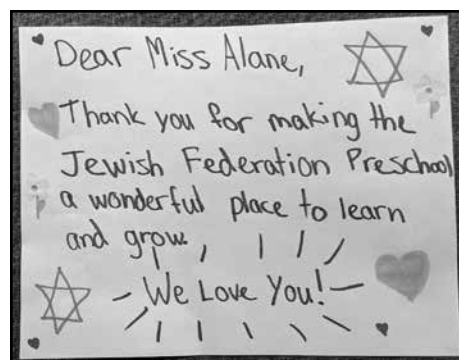 Dear Miss Alane,
Thank you for making the
Jewish Federation Preschool
a wonderful place to learn
and grow.
We Love You!